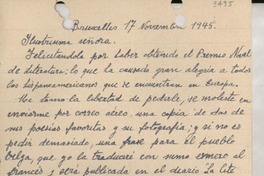 3495
Bruxelles 17 Novembre 1945.
Ilustrisima señora.
Felicitandola por haber obtenido el Premio Nobel
de Literatura; lo que ha causado gran alegria a todos
los hispanoamericanos que se encuentran en Europa.
Me tomo la libertad de pedirle, se moleste en
enviarme por correo aéreo una copia de dos de
sus poesías favoritas y su fotografía; y si no es
pedir demasiado, una frase para el pueblo
belga, que yo la traduciré con sumo esmero al
francés y será publicada en el diario "La Cité